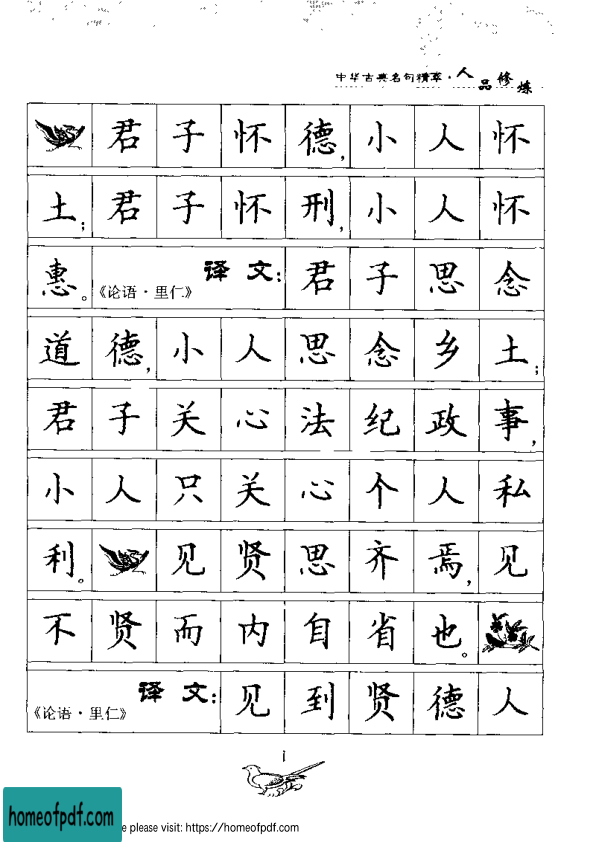 中华古典名句精萃·人品修炼
君子怀德，小人怀
土；君子怀刑，小人怀
惠。《论语·里仁》译文：君子思念
道德，小人思念乡土；
君子关心法纪政事，
小人只关心个人私
利。见贤思齐焉，见
不贤而内自省也。
《论语·里仁》译文：见到贤德人
1
homeofpdf.com
e please visit: https://homeofpdf.com